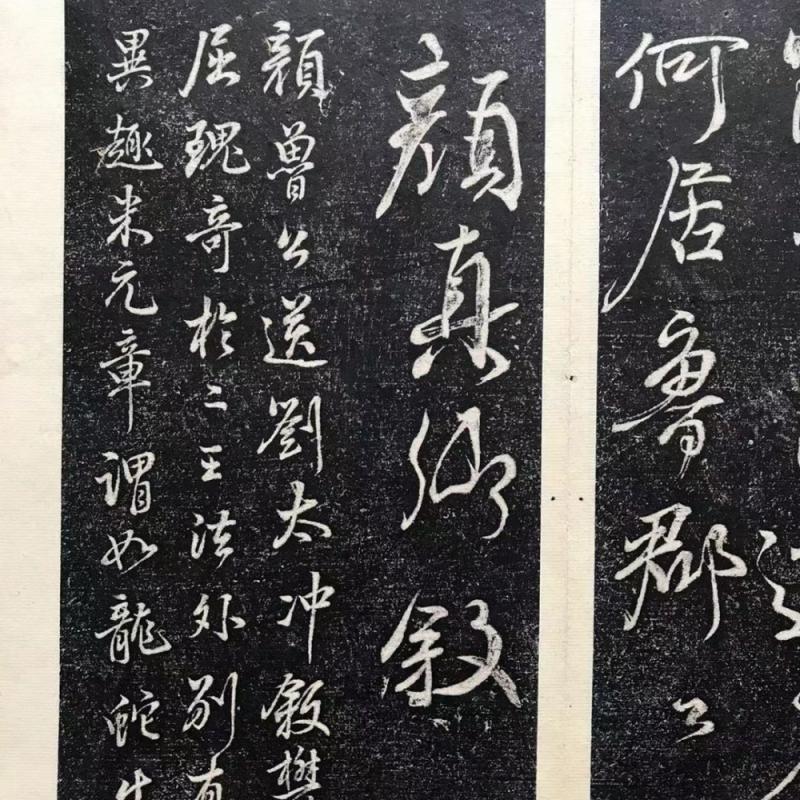 何居魯郡公
顏真卿敘
顏魯公送劉太冲敘樷
屈瑰奇於二王法外別有
異趣米元章謂如龍蛇生